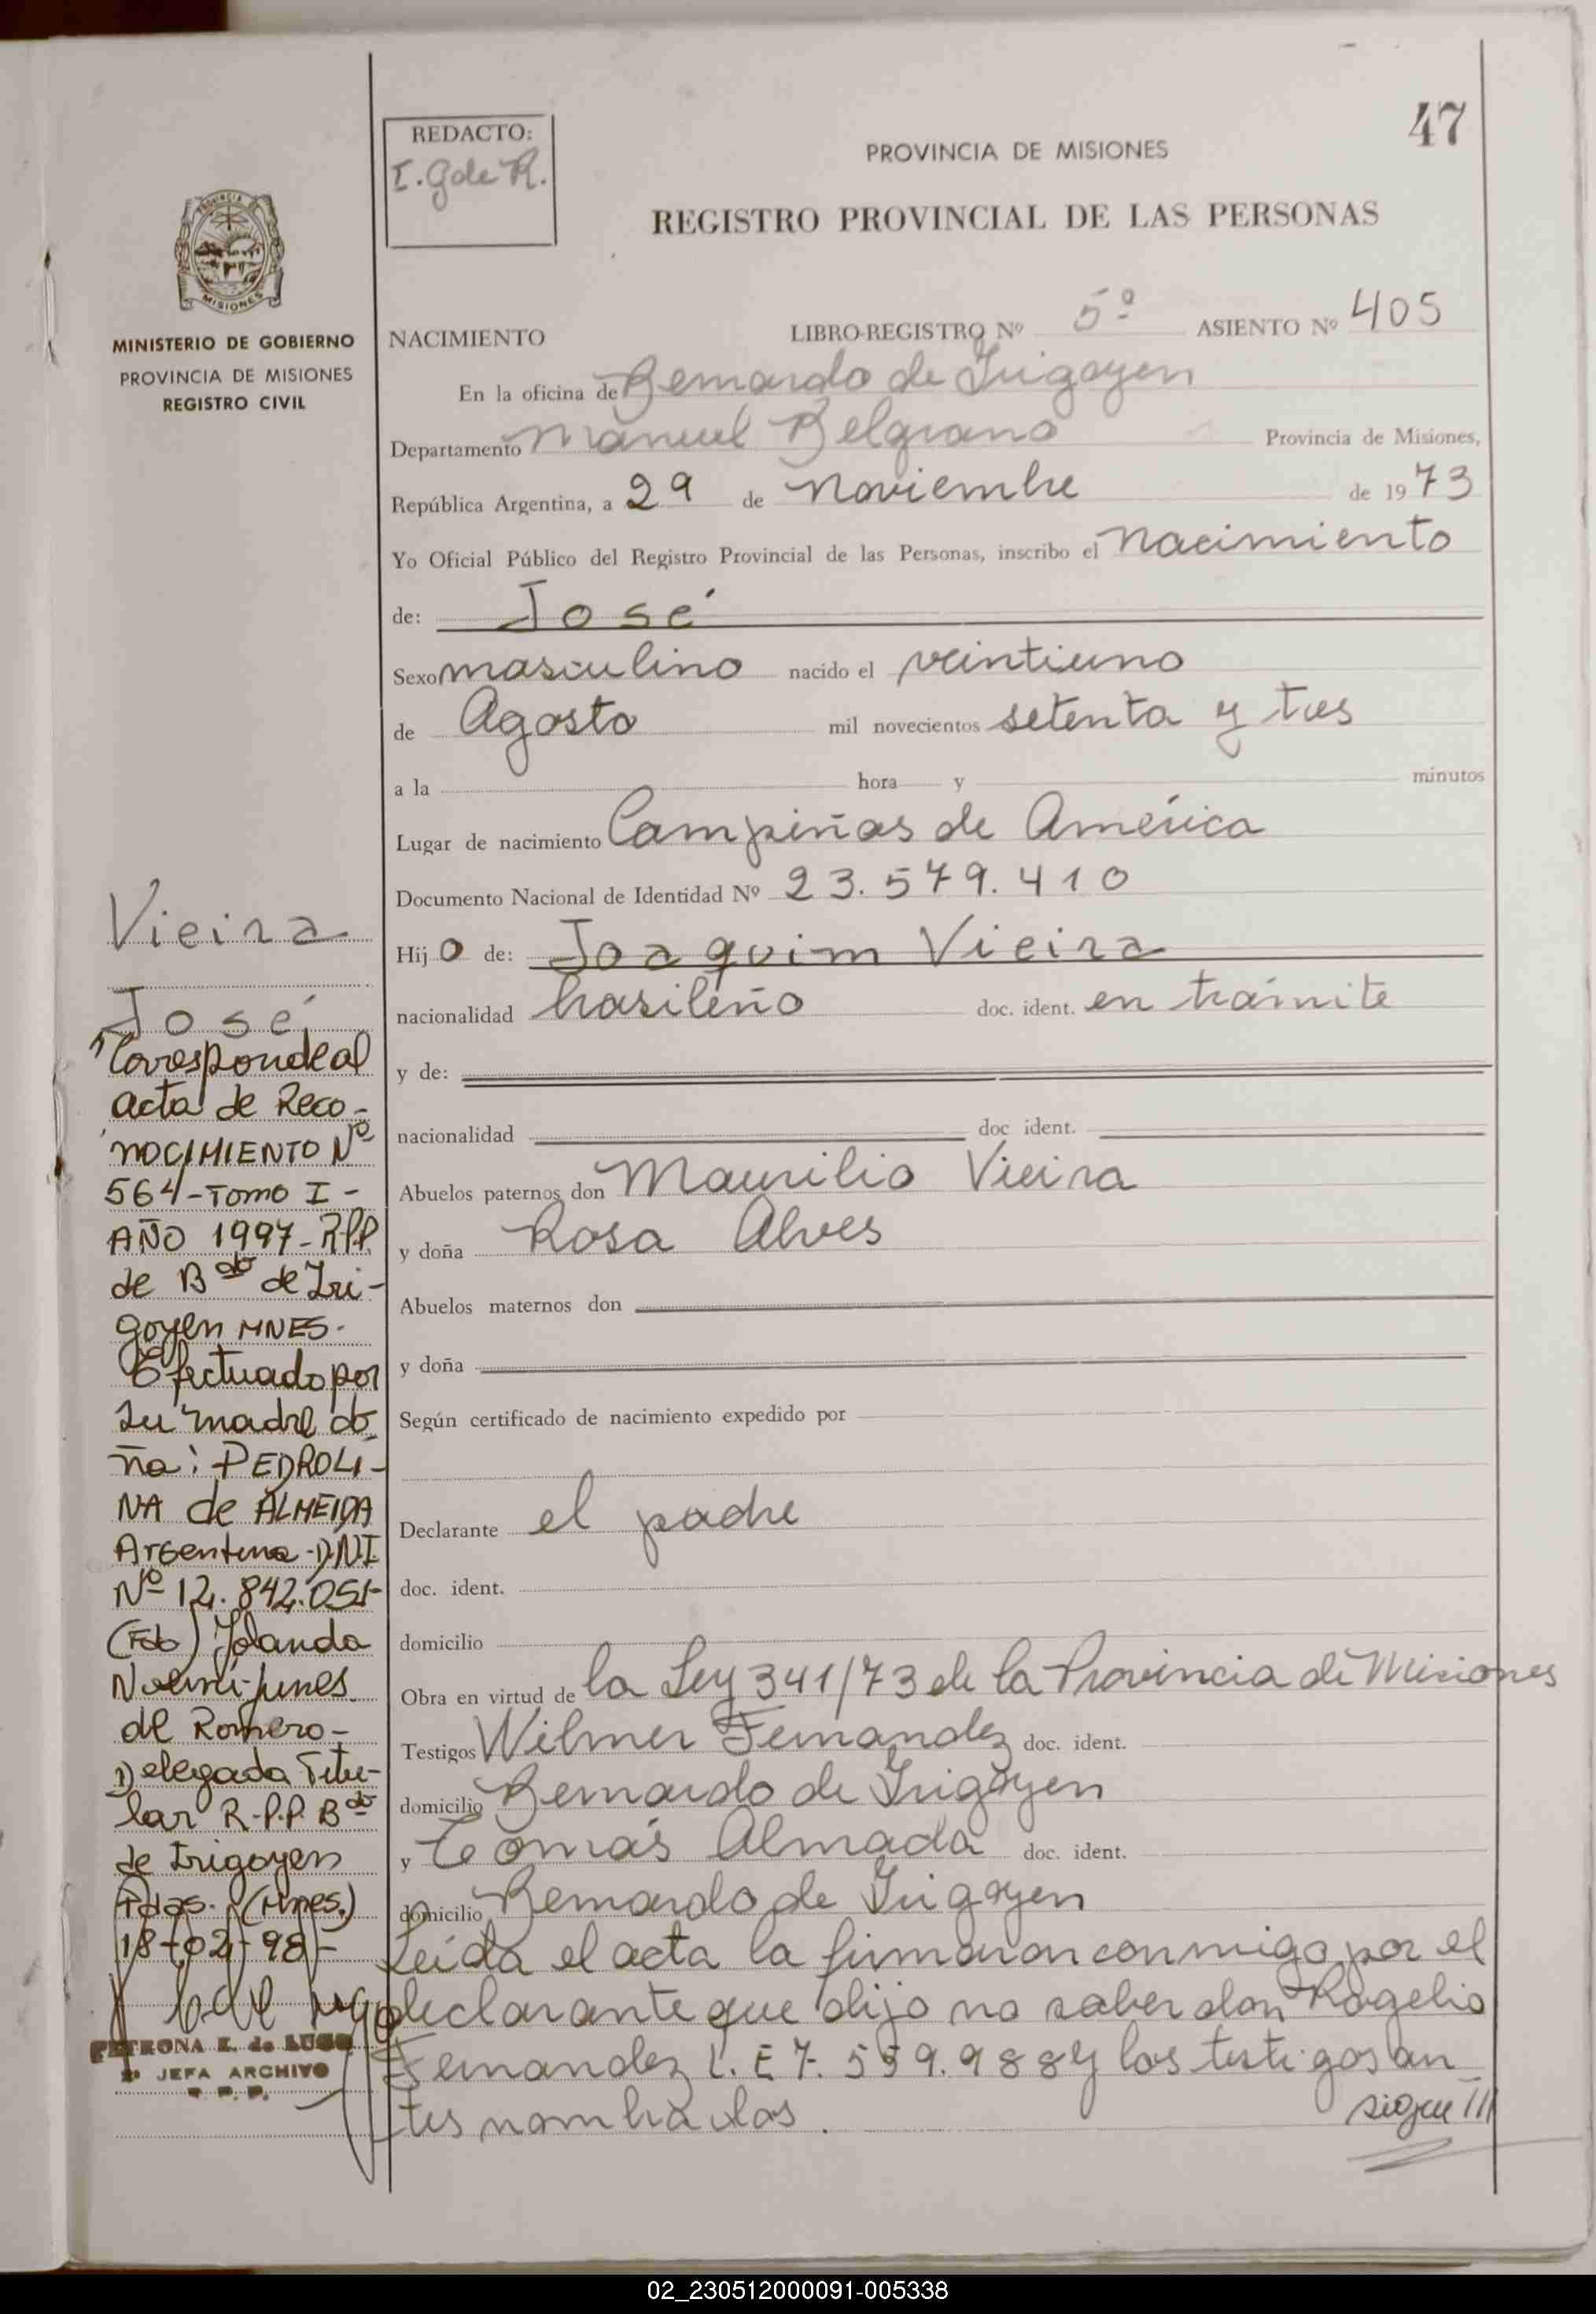 47
REDACTO:
I. G de R.
PROVINCIA DE MISIONES
REGISTRO PROVINCIAL DE LAS PERSONAS
PROVINCIA DE
MISIONES
MINISTERIO DE GOBIERNO
PROVINCIA DE MISIONES
REGISTRO CIVIL
NACIMIENTO LIBRO-REGISTRO Nº 5º ASIENTO Nº 405
En la oficina de Bernardo de Irigoyen
Departamento Manuel Belgrano Provincia de Misiones,
República Argentina, a 29 de Noviembre de 1973
Yo Oficial Público del Registro Provincial de las Personas, inscribo el Nacimiento
de: José
Sexo masculino nacido el veintiuno
de Agosto mil novecientos setenta y tres
a la hora y minutos
Lugar de nacimiento Campiñas de América
Documento Nacional de Identidad Nº 23.579.410
Hijo de: Joaquim Vieira
nacionalidad brasileño doc. ident. en trámite
y de:
nacionalidad doc ident.
Abuelos paternos don Maurilio Vieira
y doña Rosa Alves
Abuelos maternos don
y doña
Según certificado de nacimiento expedido por
Declarante el padre
doc. ident.
domicilio
Obra en virtud de la Ley 341/73 de la Provincia de Misiones
Testigos Wilmer Fernandez doc. ident.
domicilio Bernardo de Irigoyen
y Tomás Almada doc. ident.
domicilio Bernardo de Irigoyen
Leída el acta la firmaron conmigo por el
declarante que dijo no saber don Rogelio
Fernandez L. E 7. 559.988 y los testigos an
tes nombrados.
sigue ///
Vieira
José
Corresponde al
acta de Reco-
NOCIMIENTO Nº
564-Tomo I-
AÑO 1997-R.P.P.
de Bdo de Iri-
goyen MNES.
Efectuado por
su madre do
ña: PEDROLI-
NA de ALMEIDA
Argentina-D.N.I.
Nº 12.842.051-
(Fdo) Yolanda
Noemí Junes
de Romero-
Delegada Titu-
lar R.P.P. Bdo
de Irigoyen
Pdas. (Mnes.)
18-02-98-
PETRONA E. de LUGO
JEFA ARCHIVO
R. P. P.
02_230512000091-005338